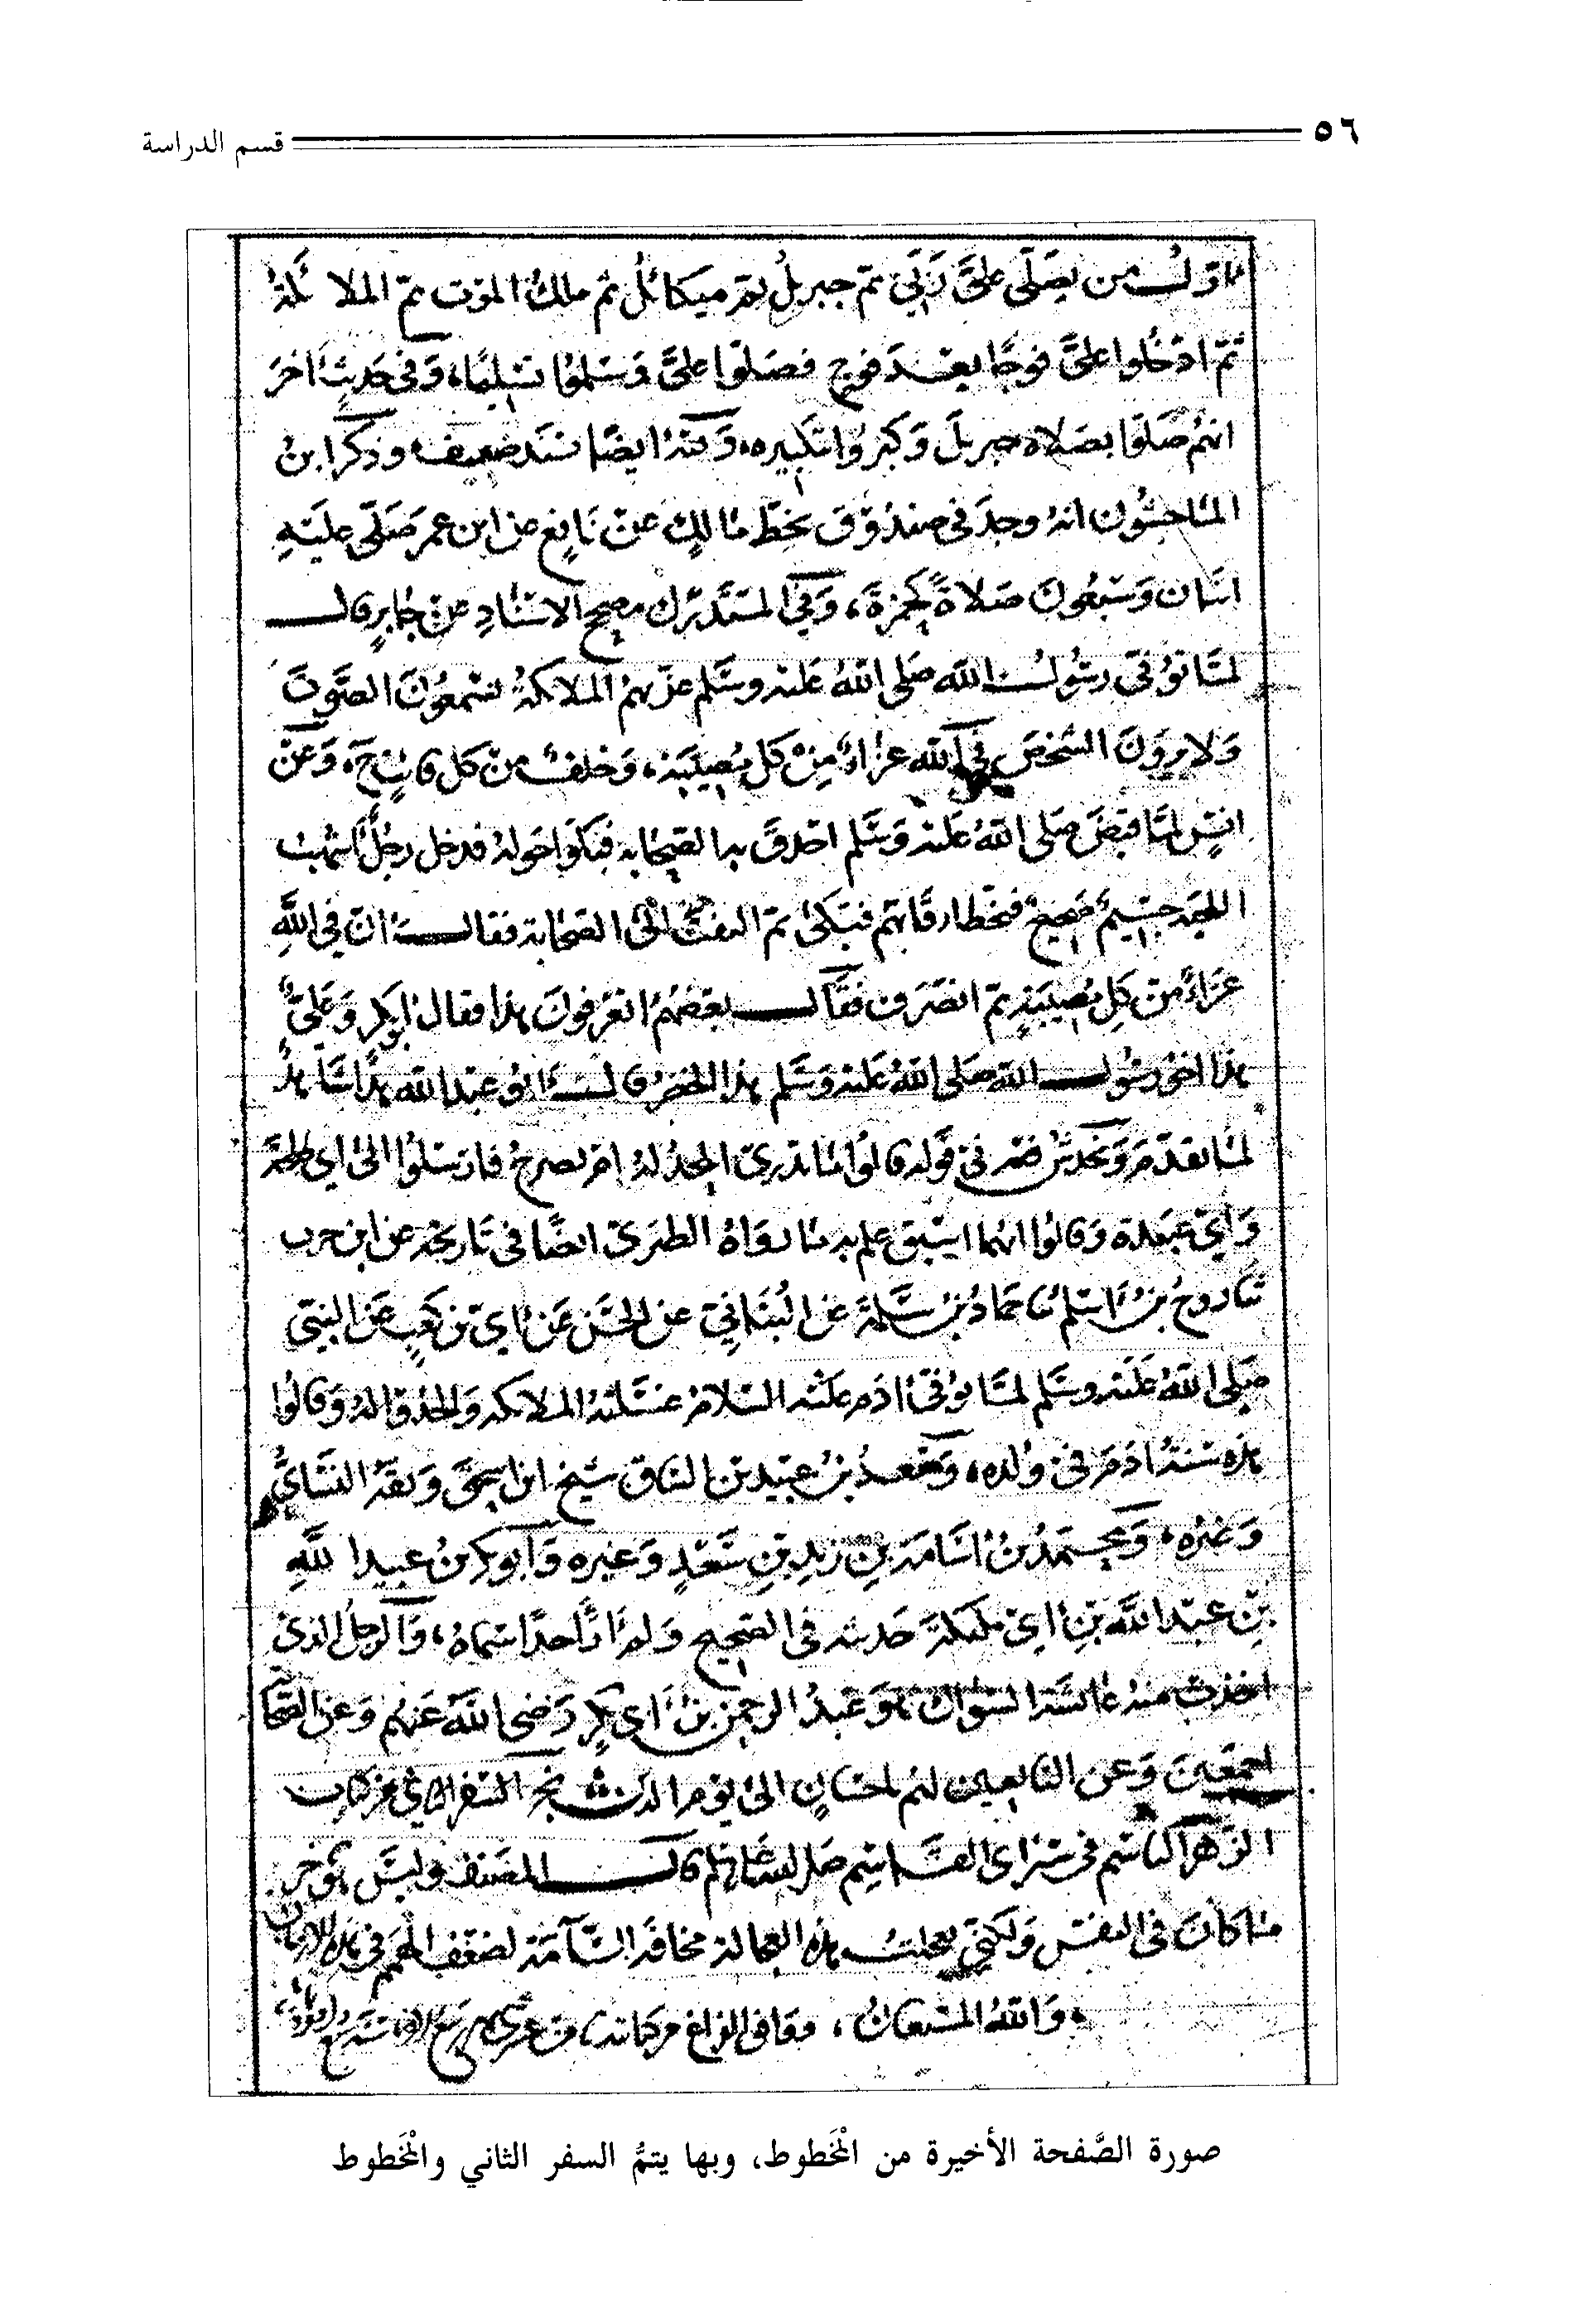 ٥٦ قسم الدراسة
اول من يصلى علىّ ربّي ثم جبريل ثم ميكائل ثم ملك الموت ثم الملائكة
ثم ادخلوا علىّ فوجًا بعد فوج فصلوا علىّ وسلموا تسليمًا، وفي حديث اخر
انهم صلوا بصلاة جبريل وكبروا بتكبيره، وسنده ايضًا سند ضعيف وذكر ابن
الماجشون انه وجد في صندوق بخط مالك عن نافع عن ابن عمر صلى عليه
اثنان وسبعون صلاة كحمزة، وفي المستدرك صحيح الاسناد عن جابر قال
لمّا توفى رسول الله صلى الله عليه وسلم عزتهم الملائكة يسمعون الصوت
ولا يرون الشخص في الله عزاء من كل مصيبة، وخلف من كل فايت، وعن
انس لمّا قبض صلى الله عليه وسلم احدق به الصحابة فبكوا حوله فدخل رجل اشهب
اللحية جسيم صبيح فتخطا رقابهم فبكى ثم التفت الى الصحابة فقال ان في الله
عزاء من كل مصيبة ثم انصرف فقال بعضهم اتعرفون هذا فقال ابو بكر وعلىّ
هذا اخو رسول الله صلى الله عليه وسلم هذا الخضر قال ابو عبد الله هذا شاهد
لما تقدم في قوله قالوا ما ندرى الحد له ام نضرح فارسلوا الى ابي طلحة
وابي عبيدة وقالوا ايهما اسبق علم به ما رواه الطبرى ايضًا في تاريخه عن ابن حرب
ثنا روح بن اسلم ثنا حماد بن سلمة عن البناني عن الحسن عن ابي بن كعب عن النبي
صلى الله عليه وسلم لما توفى ادم عليه السلام غسلته الملائكة والحدوا له وقالوا
هذه سنة ادم في ولده، وسعيد بن عبيد بن السباق شيخ ابن اسحق وثقه النسائى
وغيره، ومحمد بن اسامة بن زيد بن سعد وغيره وابو بكر بن عبيد الله
بن عبد الله بن ابي مليكة حديثه في الصحيح ولم ار احدا سماه، والرجل الذى
اخذت منه عائشة السواك هو عبد الرحمن بن ابي بكر رضى الله عنهم وعن الصحابة
اجمعين وعن التابعين لهم باحسان الى يوم الدين نجز السفر الثاني من كتاب
الزهر الباسم في سير ابى القاسم صلى الله عليه وسلم قال المصنف وليس بآخر
ما كان في النفس ولكني عجلت هذه العجالة مخافة السآمة لضعف الهمم في هذه الازمان
والله المستعان، ووافق الفراغ من كتابته
صورة الصَّفحة الأخيرة من الْمَخطوط، وبها يتمُّ السفر الثاني والْمَخطوط